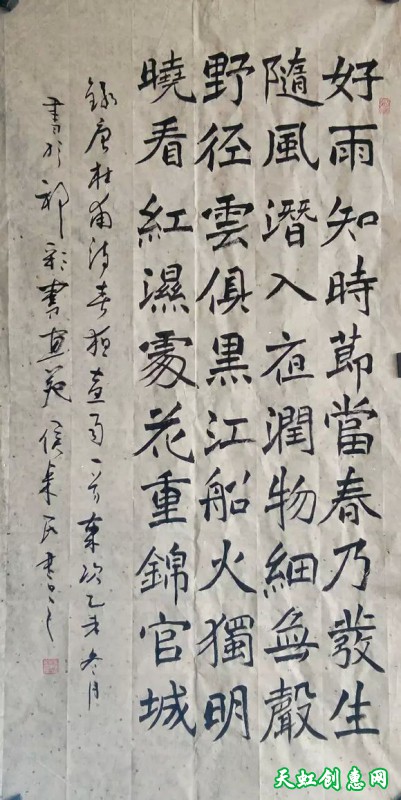 好雨知時節當春乃發生
隨風潛入夜潤物細無聲
野径雲俱黒江船火獨明
曉看紅濕處花重錦官城
錄唐杜甫诗春夜喜雨一首歲次乙未冬月
書於 彩書画苑侯来民書
天虹创惠网